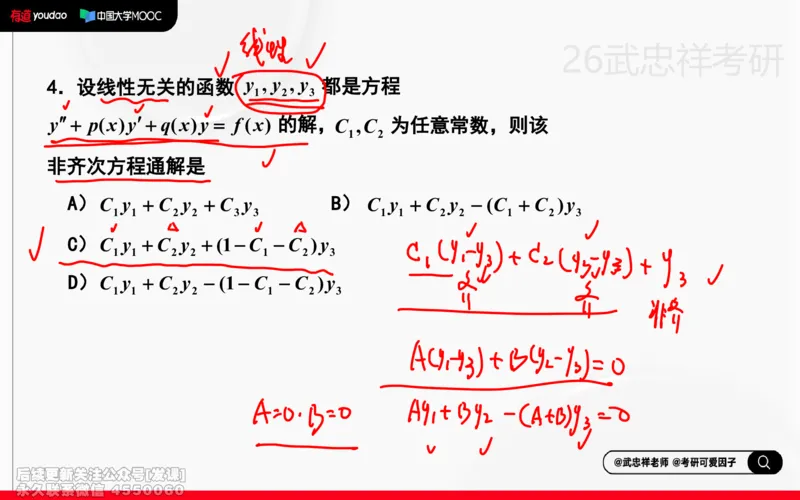 有道 youdao 中国大学MOOC
26武忠祥考研
线性
4. 设线性无关的函数 y₁, y₂, y₃ 都是方程
y″ + p(x)y′ + q(x)y = f(x) 的解，C₁, C₂ 为任意常数，则该
非齐次方程通解是
A） C₁y₁ + C₂y₂ + C₃y₃ B） C₁y₁ + C₂y₂ − (C₁ + C₂)y₃
C） C₁y₁ + C₂y₂ + (1 − C₁ − C₂)y₃
C₁(y₁−y₃) + C₂(y₂−y₃) + y₃
D） C₁y₁ + C₂y₂ − (1 − C₁ − C₂)y₃
齐 齐 非齐
A(y₁−y₃) + B(y₂−y₃) = 0
A=0. B=0 Ay₁ + By₂ − (A+B)y₃ = 0
@武忠祥老师 @考研可爱因子
后续更新关注公众号[发课]
永久联系微信 4550060